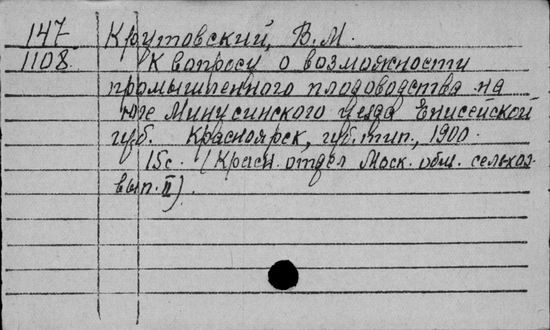 147 Крутовский, В.М.
1108 К вопросу о возможности
промышленного плодоводства на
юге Минусинского уезда Енисейской
губ. Красноярск, губ. тип., 1900.
15с. (Красн. отдел Моск. общ. сельхоз.
вып. II).